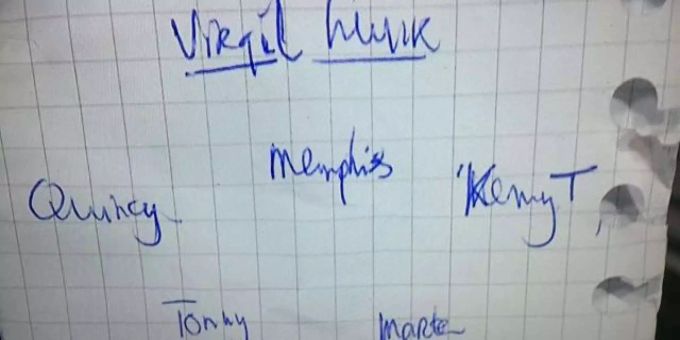 Virgil
Memphis
Quincy Kenny T
Tonny Marten